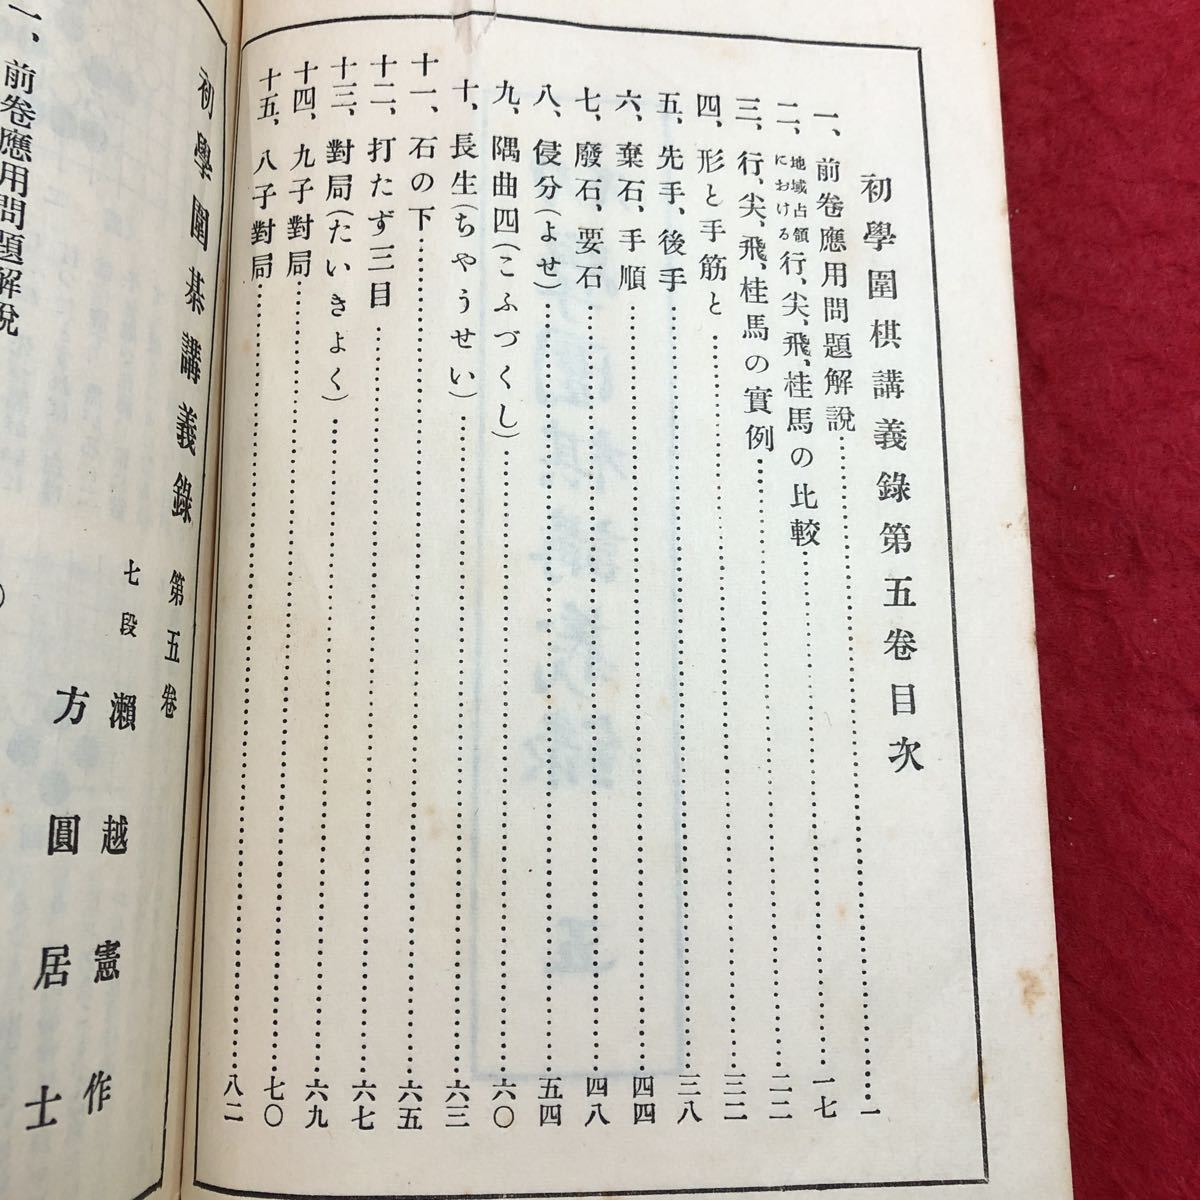 初學圍棋講義錄第五卷目次
一、前卷應用問題解說……一
二、地域占領における行、尖、飛、桂馬の比較……一七
三、行、尖、飛、桂馬の實例……二二
四、形と手筋と……三二
五、先手、後手……三八
六、棄石、手順……四四
七、廢石、要石……四八
八、侵分(よせ)……五四
九、隅曲四(こふづくし)……六〇
十、長生(ちやうせい)……六三
十一、石の下……六五
十二、打たず三目……六七
十三、對局(たいきよく)……六九
十四、九子對局……七〇
十五、八子對局……八二
初學圍棊講義錄 第五卷
七段 瀨越憲作
方圓居士
一、前卷應用問題解說